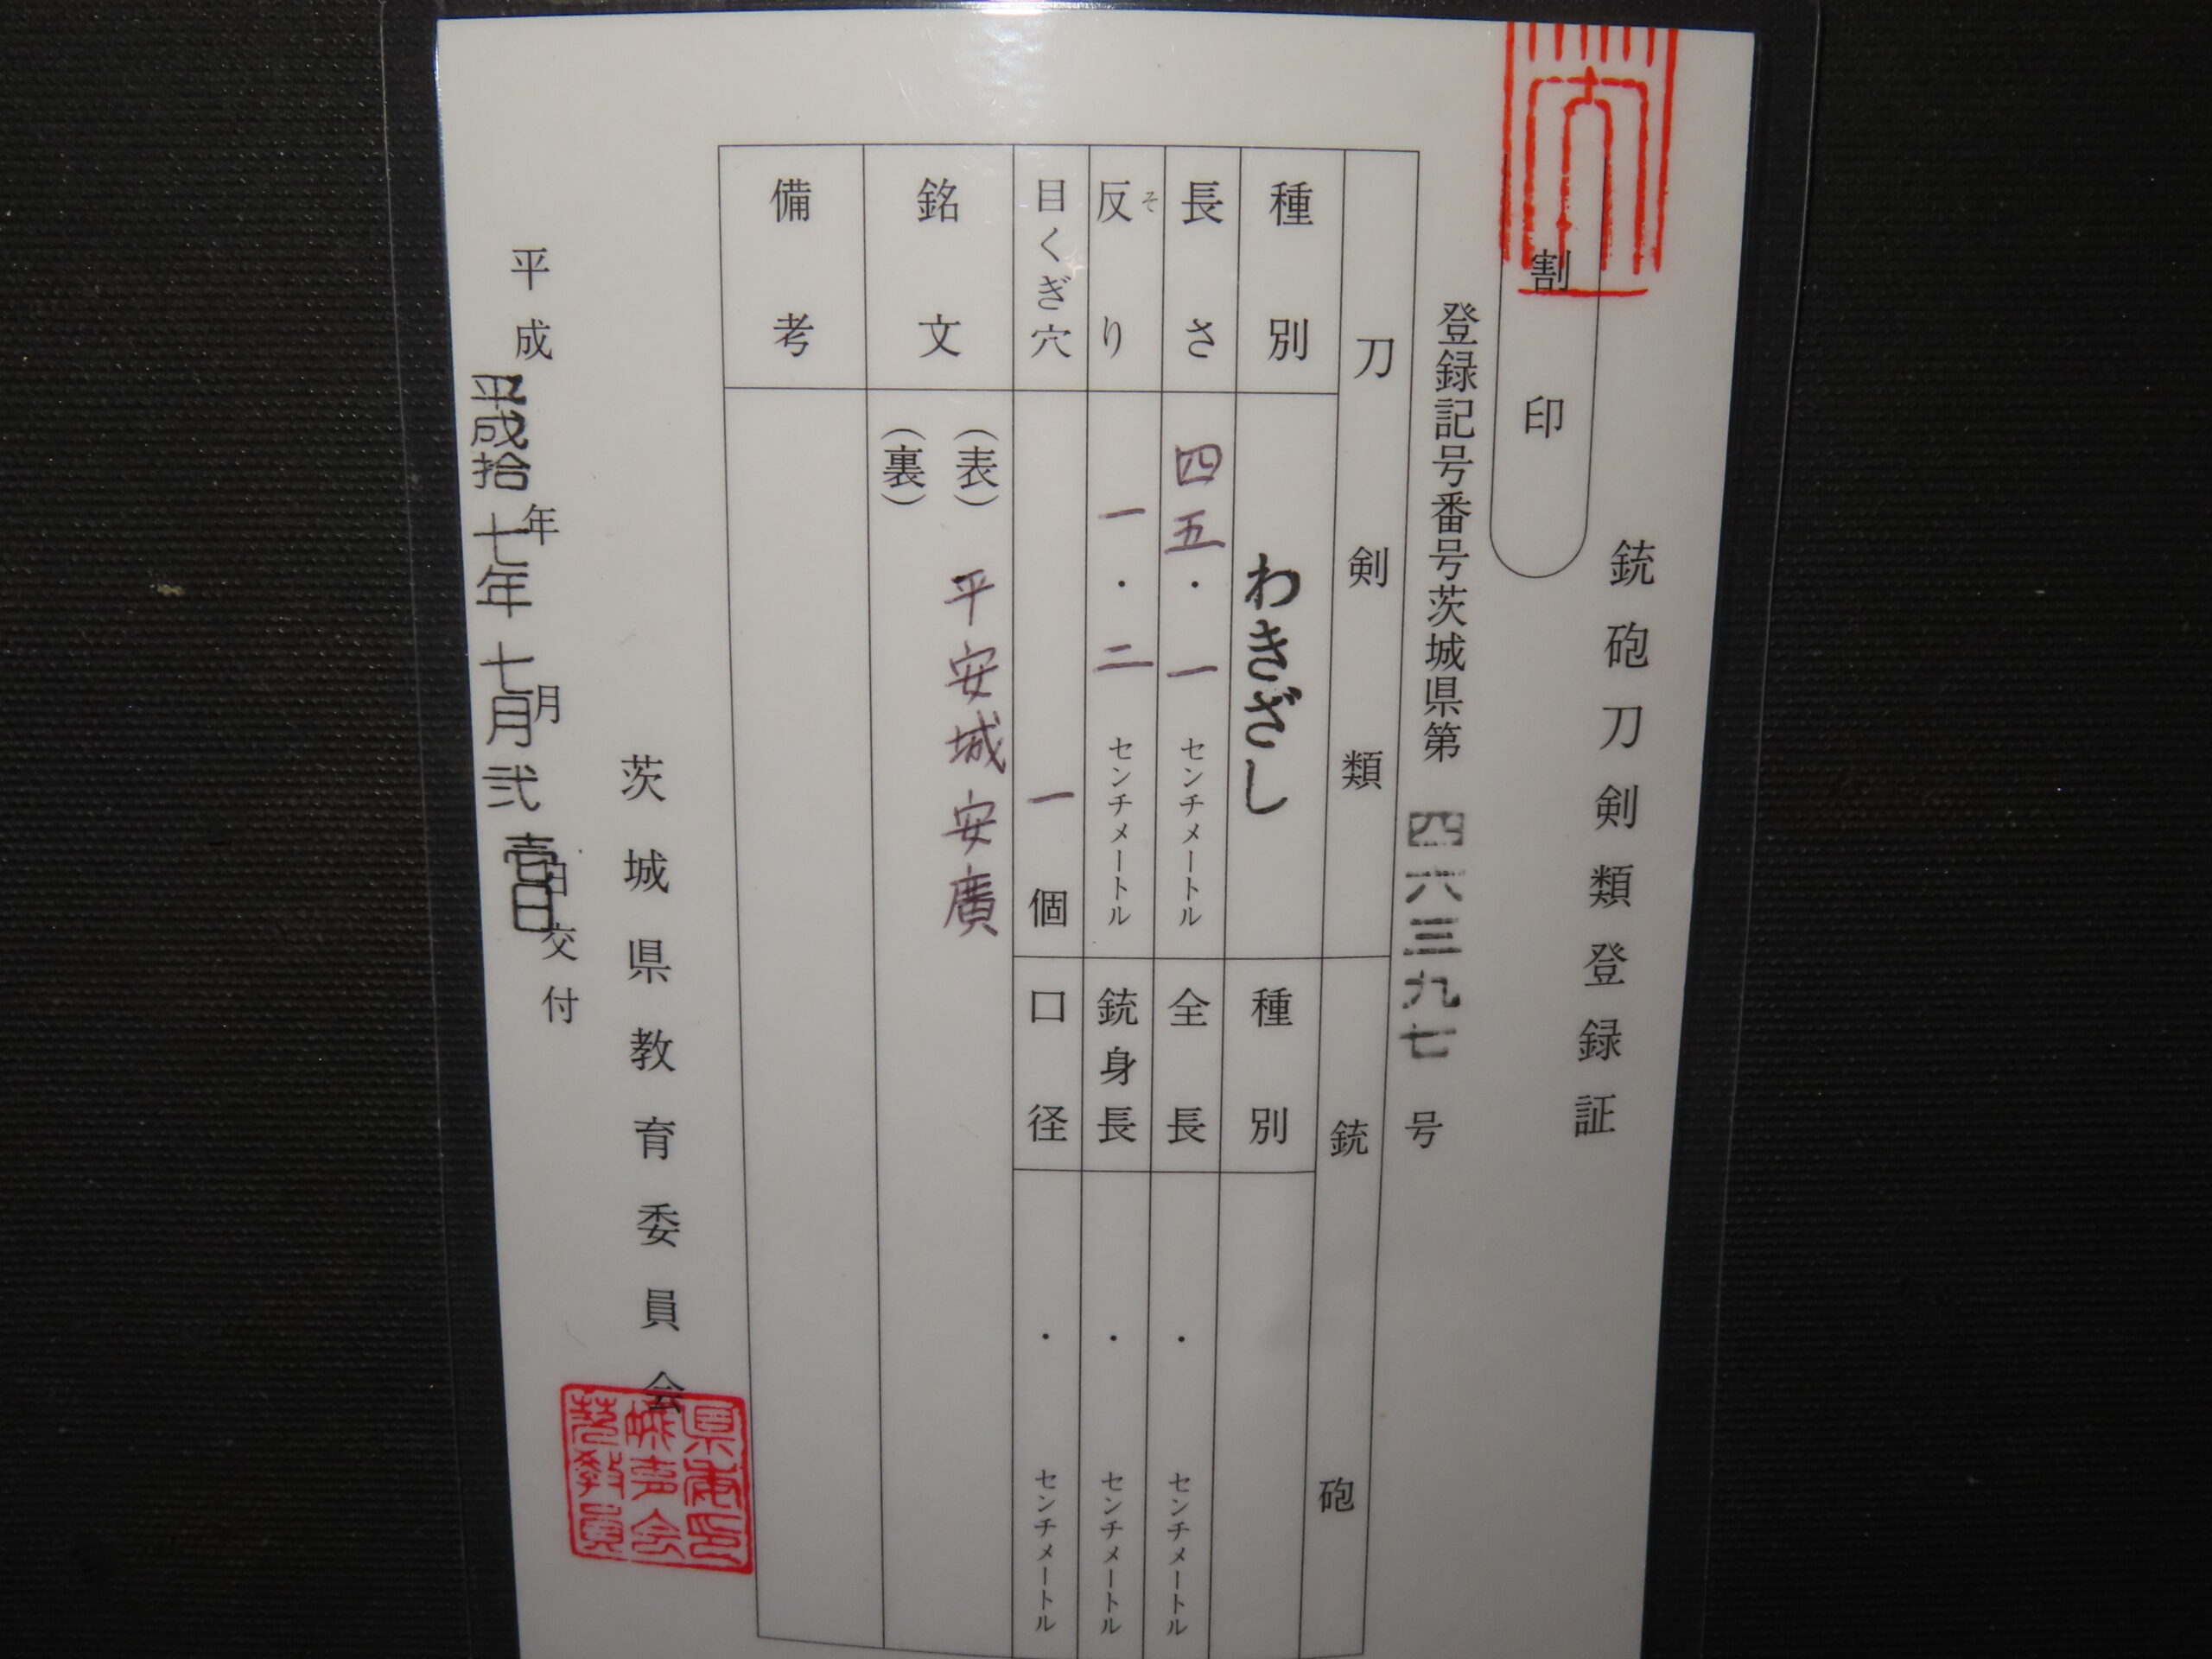 銃砲刀剣類登録証
割印
登録記号番号茨城県第 四六三九七 号
刀剣類
銃砲
種別 わきざし
種別
長さ 四五・一 センチメートル
全長 ・ センチメートル
反り そ 一・二 センチメートル
銃身長 ・ センチメートル
目くぎ穴 一 個
口径 ・ センチメートル
銘文 (表) 平安城安廣
(裏)
備考
茨城県教育委員会
平成 年 月 日交付
平成拾七年七月弐壱日